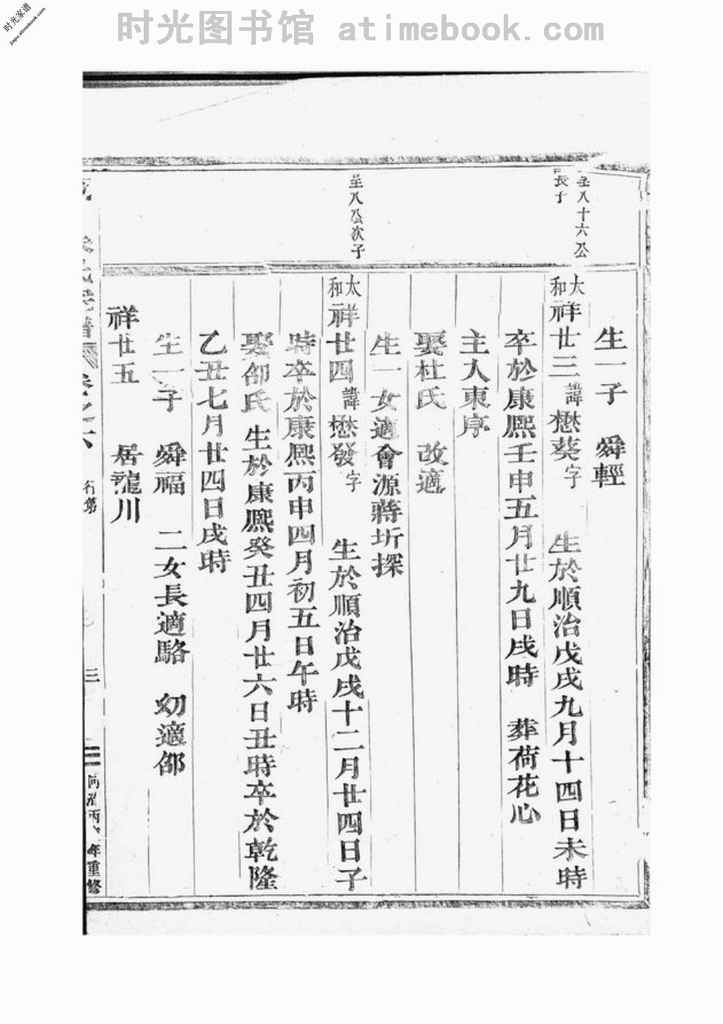 时光图书馆 atimebook.com
时光家谱
jiapu.atimebook.com
圣八十六公
長子
生一子 舜輕
太和祥廿三諱懋葵字 生於順治戊戌九月十四日未時
卒於康熙壬申五月廿九日戌時 葬荷花心
主人東序
娶杜氏 改適
生一女適會源蔣圻探
至八公次子
太和祥廿四諱懋發字 生於順治戊戌十二月廿四日子
時卒於康熙丙申四月初五日午時
娶邵氏 生於康熙癸丑四月廿六日丑時卒於乾隆
乙丑七月廿四日戌時
生一子 舜福 二女長適駱 幼適邵
祥廿五 居龍川
譜 卷之六 行第 三
年重修